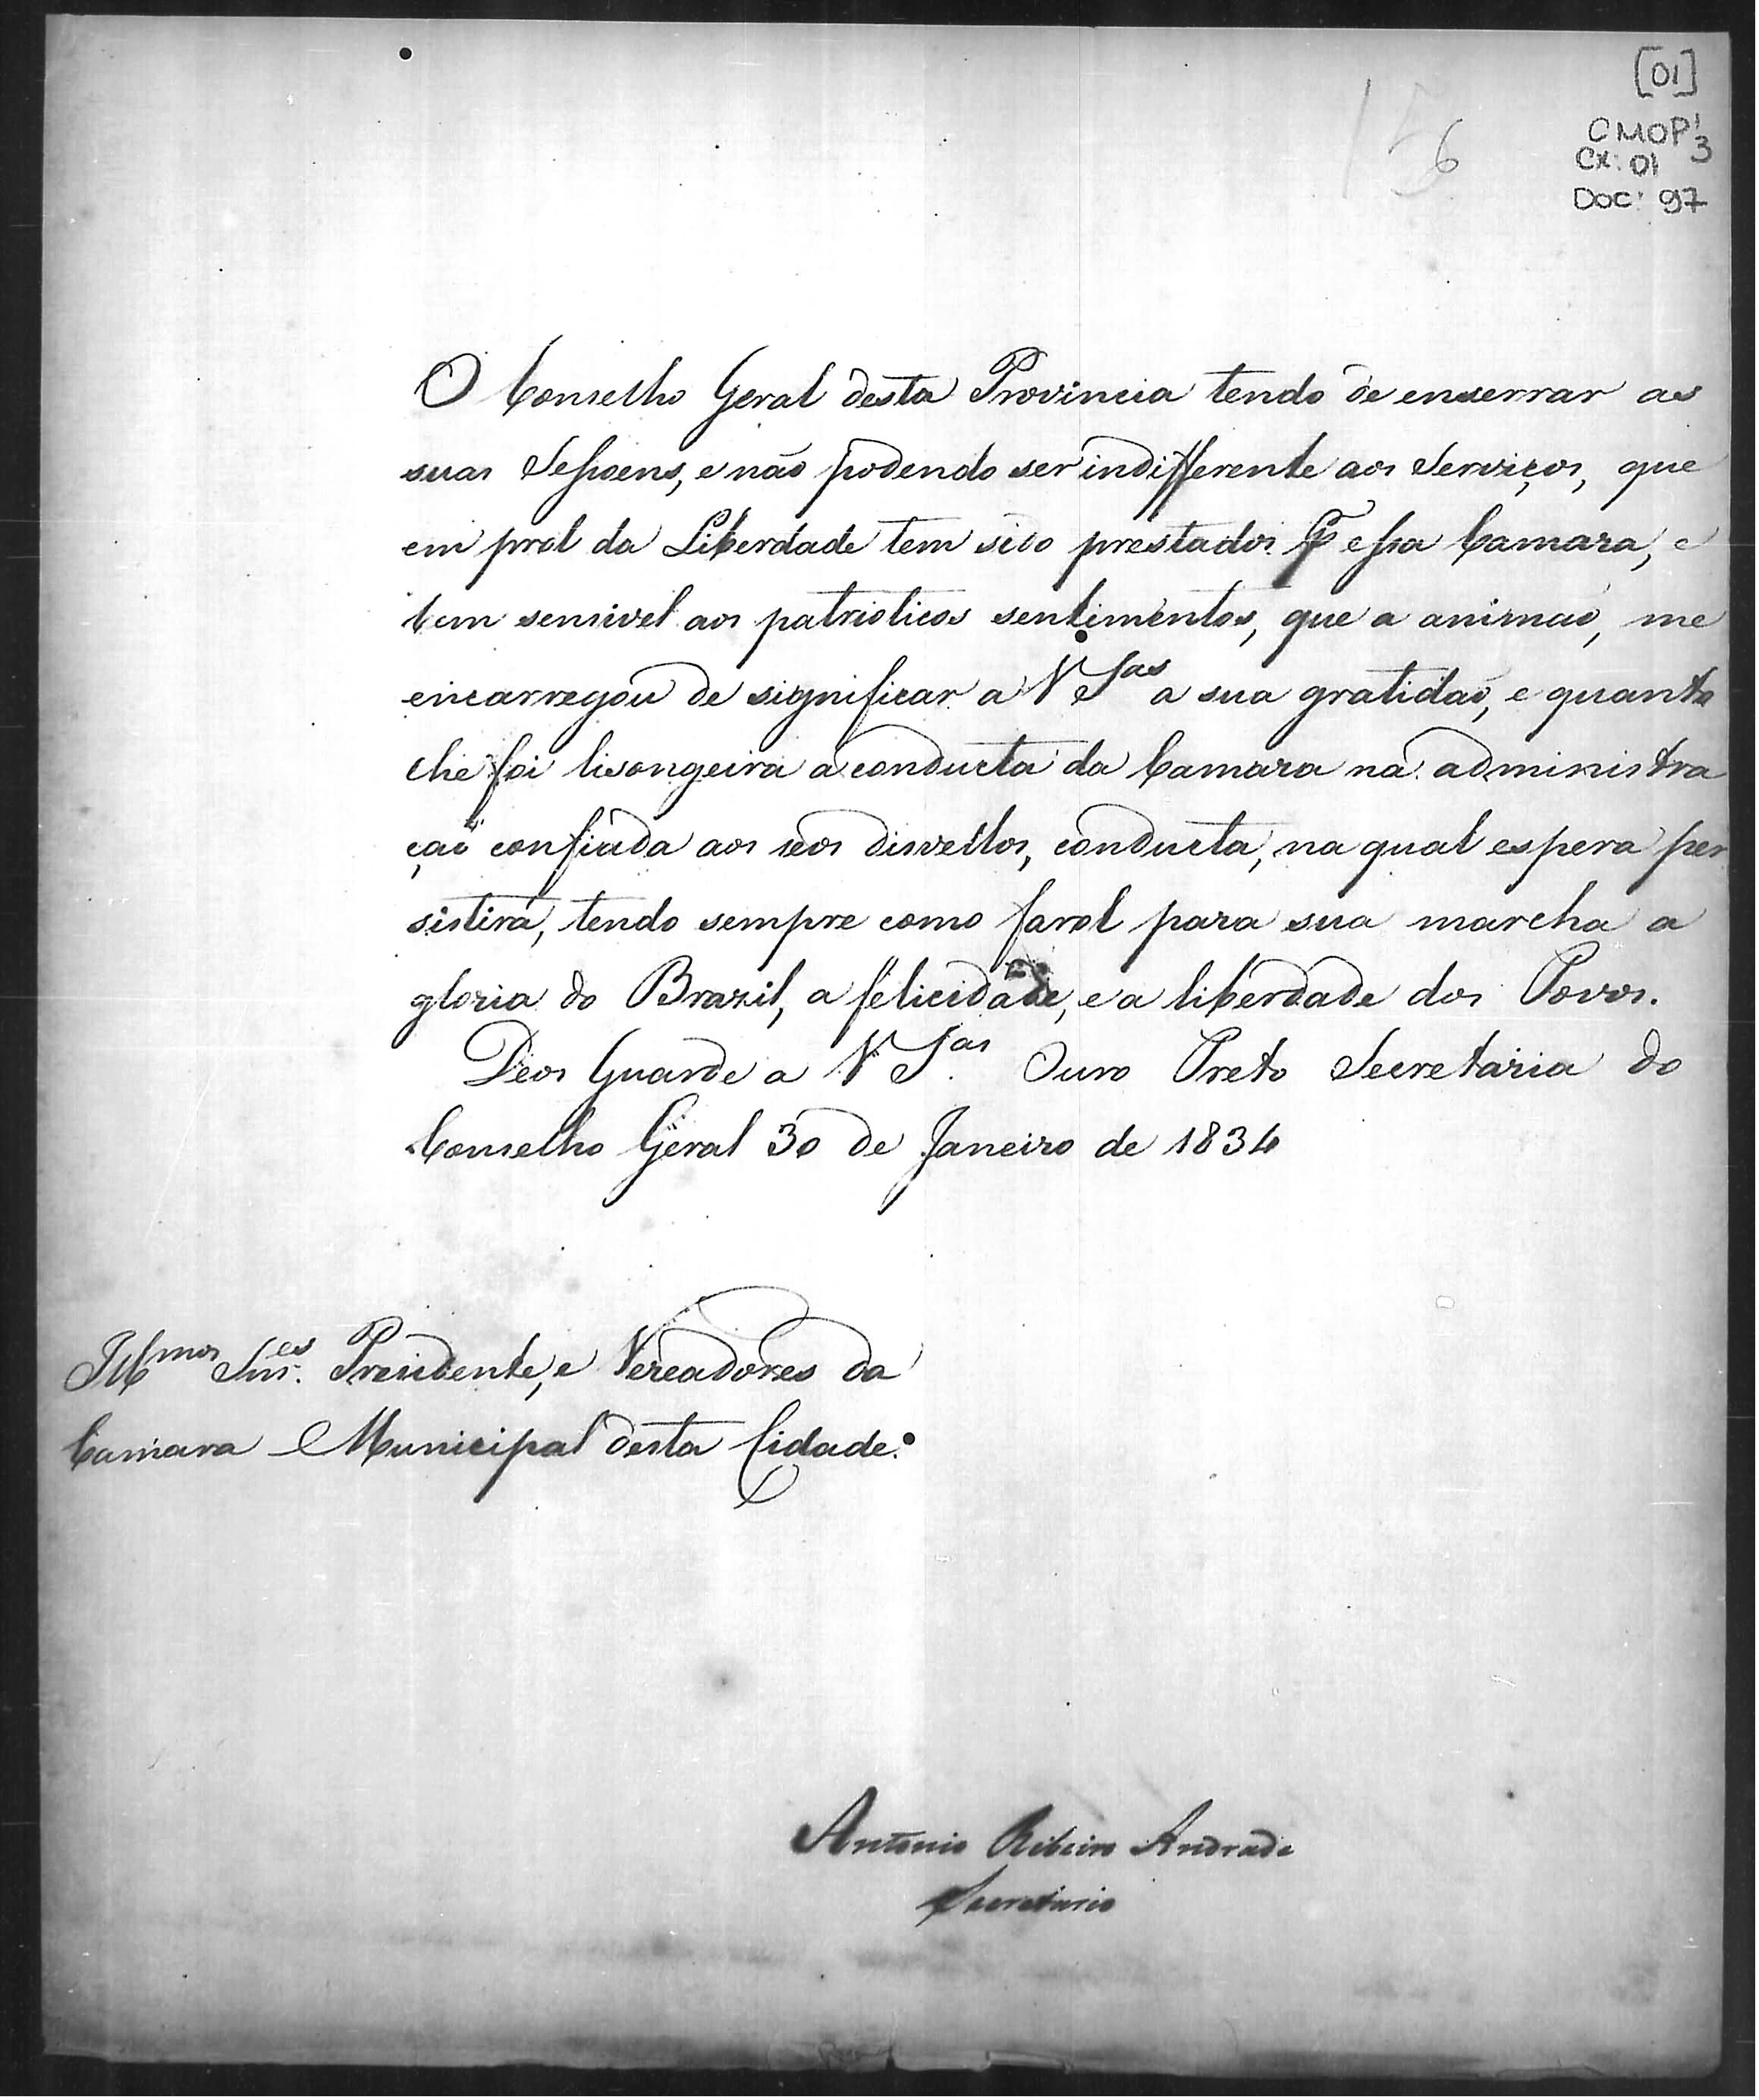 [01]
CMOP 3
Cx: 01
Doc: 97
156
O Conselho Geral desta Provincia tendo de enserrar as
suas Sessoens, e não podendo ser indifferente aos Serviços, que
em prol da Liberdade tem sido prestados p essa Camara, e
bem sensivel aos patrioticos sentimentos, que a animaõ, me
encarregou de significar a V Sas a sua gratidaõ, e quanto
lhe foi lisongeira a conducta da Camara na administra
çaõ confiada aos seos disvellos, conducta, na qual espera per
sistirá, tendo sempre como farol para sua marcha a
gloria do Brazil, a felicidade, e a liberdade dos Povos.
Deos Guarde a V Sas. Ouro Preto Secretaria do
Conselho Geral 30 de Janeiro de 1834
Illmos Snres. Presidente, e Vereadores da
Camara Municipal desta Cidade.
Antonio Ribeiro Andrade
Secretario